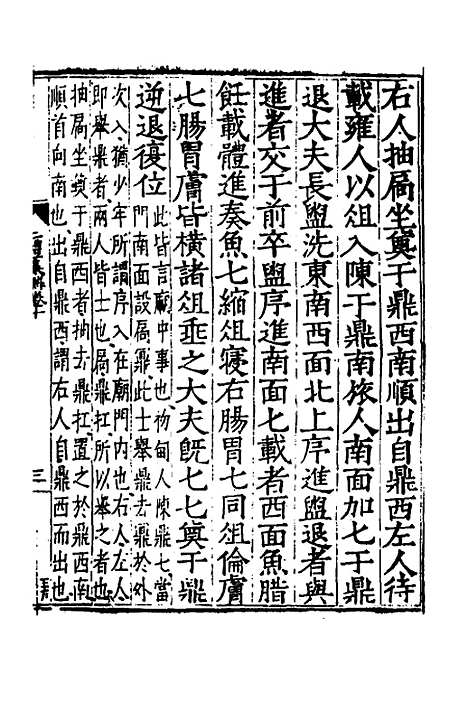 右人抽扃坐奠于鼎西南順出自鼎西左人待
載雍人以俎入陳于鼎南旅人南面加匕于鼎
退大夫長盥洗東南西面北上序進盥退者與
進者交于前卒盥序進南面匕載者西面魚腊
飪載體進奏魚七縮俎寢右腸胃七同俎倫膚
七腸胃膚皆橫諸俎垂之大夫旣匕匕奠于鼎
逆退復位
此皆言廟中事也甸人陳鼎七當
門南面設扃鼏此士舉鼎去鼏於外
次入猶少牢所謂序入在廟門内也右人左人
即舉鼎者兩人皆士也扃鼎扛所以舉之者也
抽扃坐奠于鼎西者抽去鼎扛置之於鼎西南
順首向南也出自鼎西謂右人自鼎西而出也
三